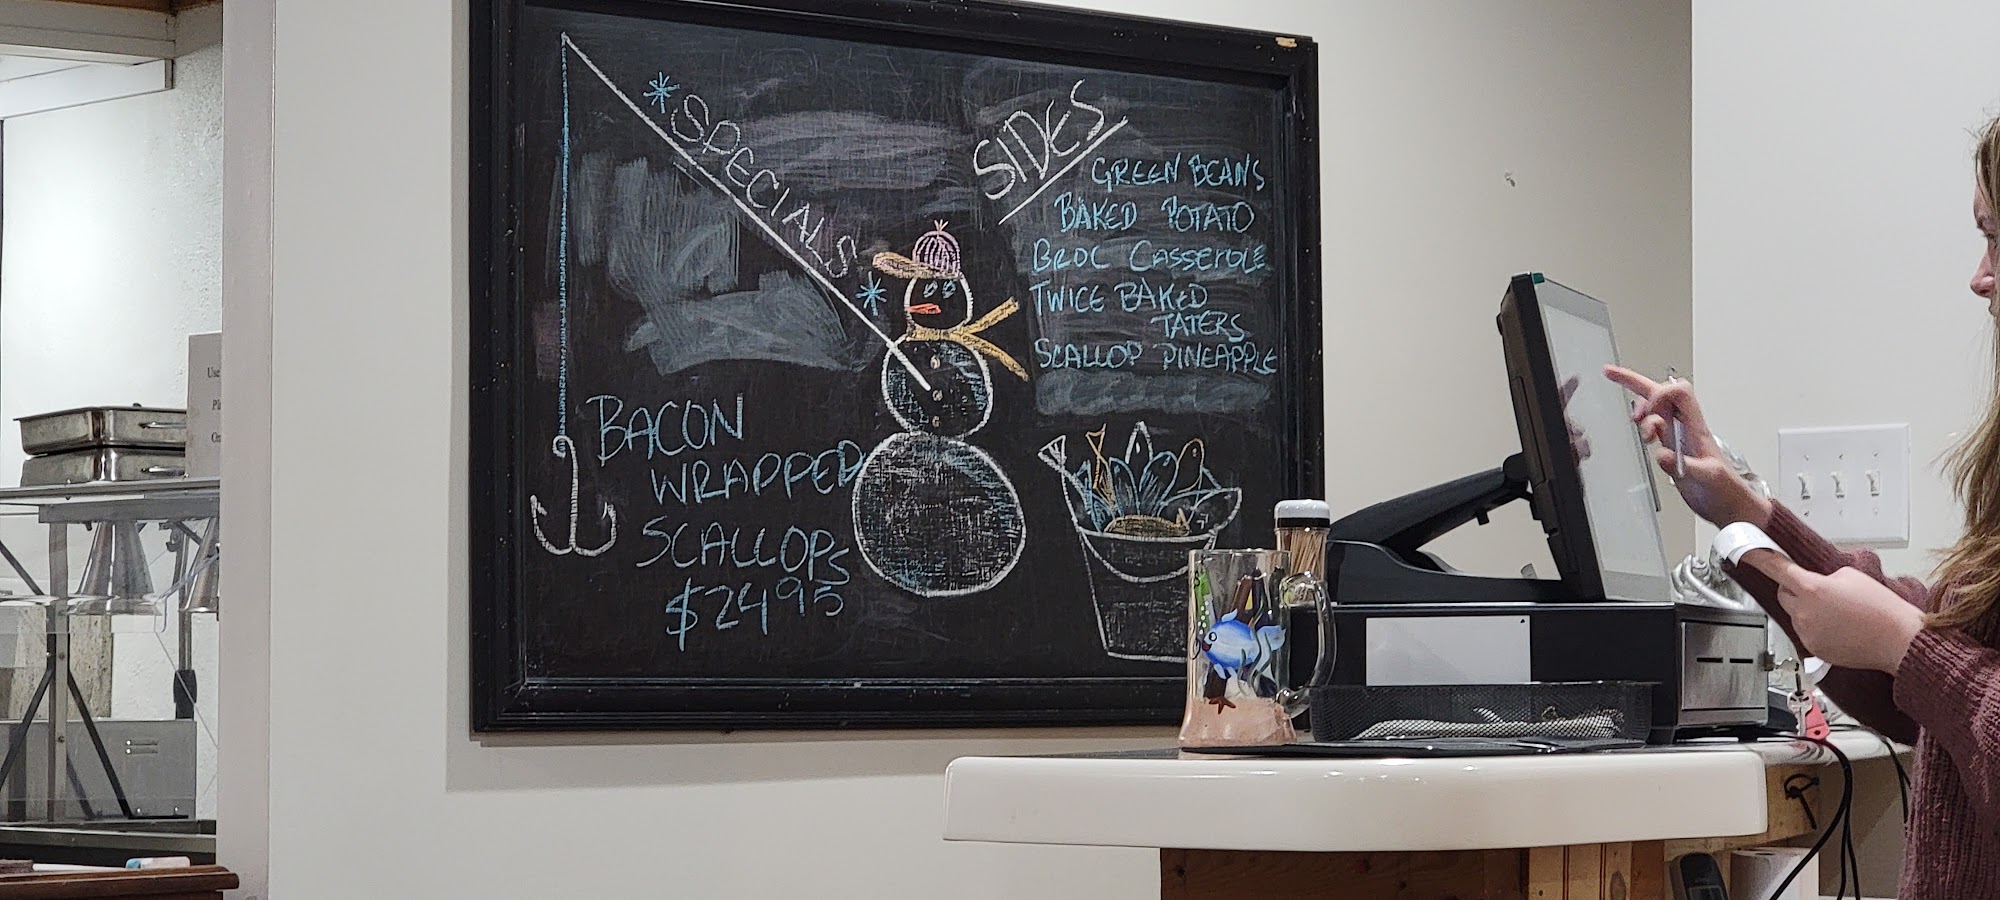 SPECIALS
BACON
WRAPPED
SCALLOPS
$24.95
SIDES
GREEN BEANS
BAKED POTATO
BROC CASSEROLE
TWICE BAKED
TATERS
SCALLOP PINEAPPLE
Use